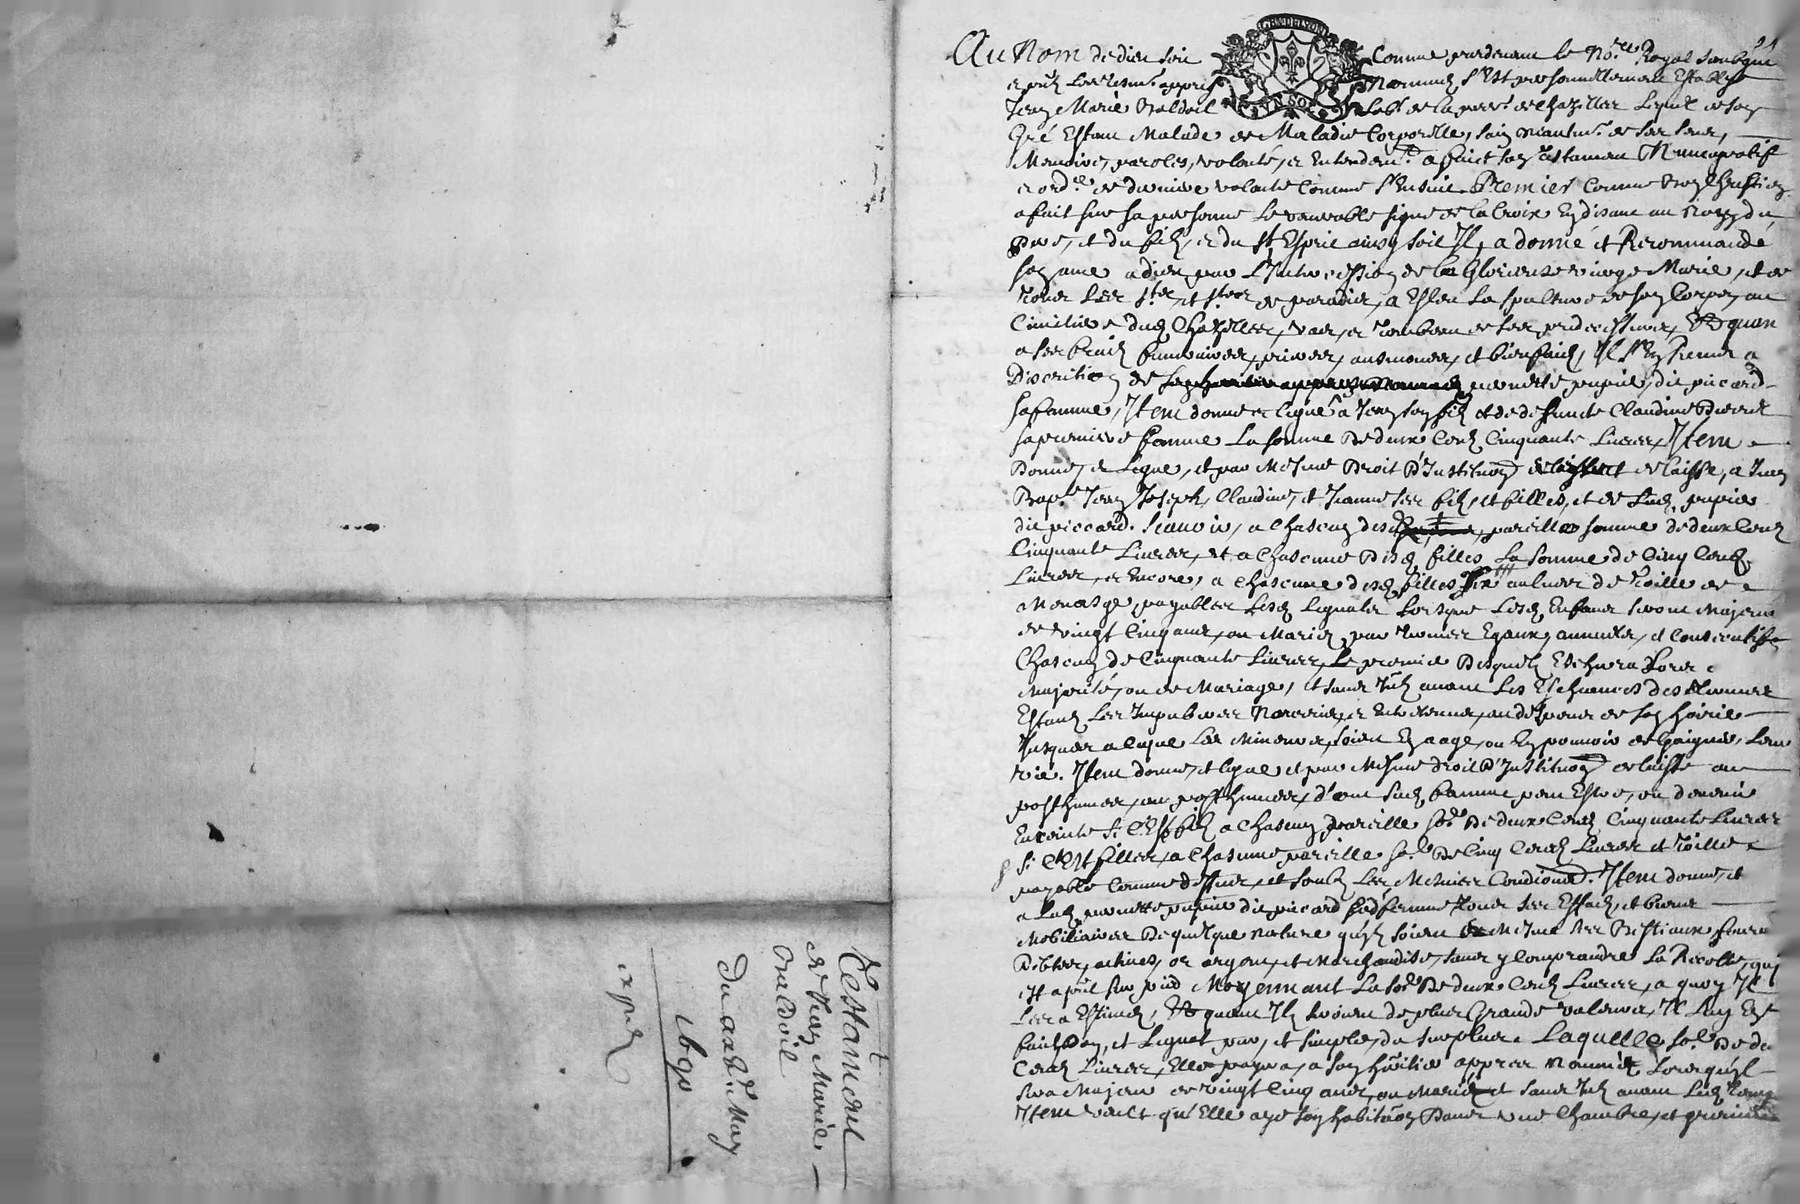 Testament
de Jean Marie
Valdoil
Du 22e May
1690
expedié
GEN DE LYON
Au Nom de dieu soit Comme pardevant le No.re Royal soubsigné
et p.ns Les tesm.s appres Nommez s'Est personnellement Estably
Jean Marie Valdoil Lab.r de la parr.e de Chazelles Lequel de son
Gré Estant Malade de Maladie Corporelle, sain neantm.s de ses sens,
Memoire, paroles, volonté, et Entendem.t a faict son Testament Nuncupatif
et ord.ce de derniere volonté Comme s'Ensuit. Premier Comme vray Chrestien
a fait sur sa personne Le venerable signe de la Croix En disant au Nom du
Pere, et du fils, et du St Esprit ainsy soit Il, a donné et Recommandé
son ame a dieu par L'Intercession de la Glorieuse vierge Marie, et de
Tous Les Sts et Stes de paradis, a Esleu La sepulture de son Corps, au
Cimitiere dud. Chazelles, vas, et Tombeau de ses predecesseurs, Et quant
a ses fraiz funeraires, prieres, ausmones, et bienfaicts, Il s'En Remet a
Discretion de son pernette pupie, dit piccard
sa femme, Item donne et legue a Jean son fils et de deffuncte Claudine
sa premiere femme La somme De deux Cents Cinquante Livres, Item
Donne, et Legue, et par Mesme Droit D'Institution delaisse, a Jean
Bap.te Jean Joseph, Claudine, et Jeanne ses fils, et filles, et de Lad. pupie
dit piccard. Scavoir, a Chascun desd. pareille somme de deux Cents
Cinquante Livres, et a Chascune Desd. filles La somme de Cinq Cents
Livres, et Encores a Chascune desd. filles six aulnes de Toille de
Menasge, payables Lesd. Legats Lorsque Lesd. Enfans seront Majeurs
de vingt Cinq ans, ou Mariez par Termes Egaux, annuels, et Consecutifs
Chascun de Cinquante Livres, Le premier Desquels Escherra Lors de
Majorité, ou de Mariage, et sans Int. avant Les Escheances des Termes
Estant Les Impuberes Nourris, et Entretenus, au despens de son hoirie
Jusques a ce que Les Mineurs soient En aage, ou En pouvoir de Gaigner Leur
vie. Item donne, et legue et par Mesme droit D'Institution delaisse au
posthumes, ou posthumes, d'ont sad. femme peut Estre, ou devenir
Enceinte si C'Est fils a Chascun pareille so.e De deux Cents Cinquante Livres
si C'Est filles, a Chascune pareille so.e De Cinq Cents Livres et Toille
payable Comme dessus, et soubs Les Mesmes Conditions. Item donne, et
a Lad. pernette pupie dit piccard sad. femme Tous ses Effects, et biens
Mobiliaires De quelque nature qu'ils soient Mesme ses Bestiaux
Debtes, actives, or argent, et Marchandise, sans y Comprandre La Recolte, qui
Est a pnt sur pied Moyennant La so.e De deux Cents Livres, a quoy Il
Les a Estimés, Et quant Ils seroient de plus Grande valeur, Il Luy En
fait Don, et Leguat pur, et simple, du surplus. Laquelle so.e De deux
Cents Livres, Elle payera, a son heritier appres Nommé Lorsqu'il
sera Majeur de vingt Cinq ans, ou Marié et sans Int. avant Led. Temps
Item veut qu'Elle aye son habitaon Dans une Chambre, et